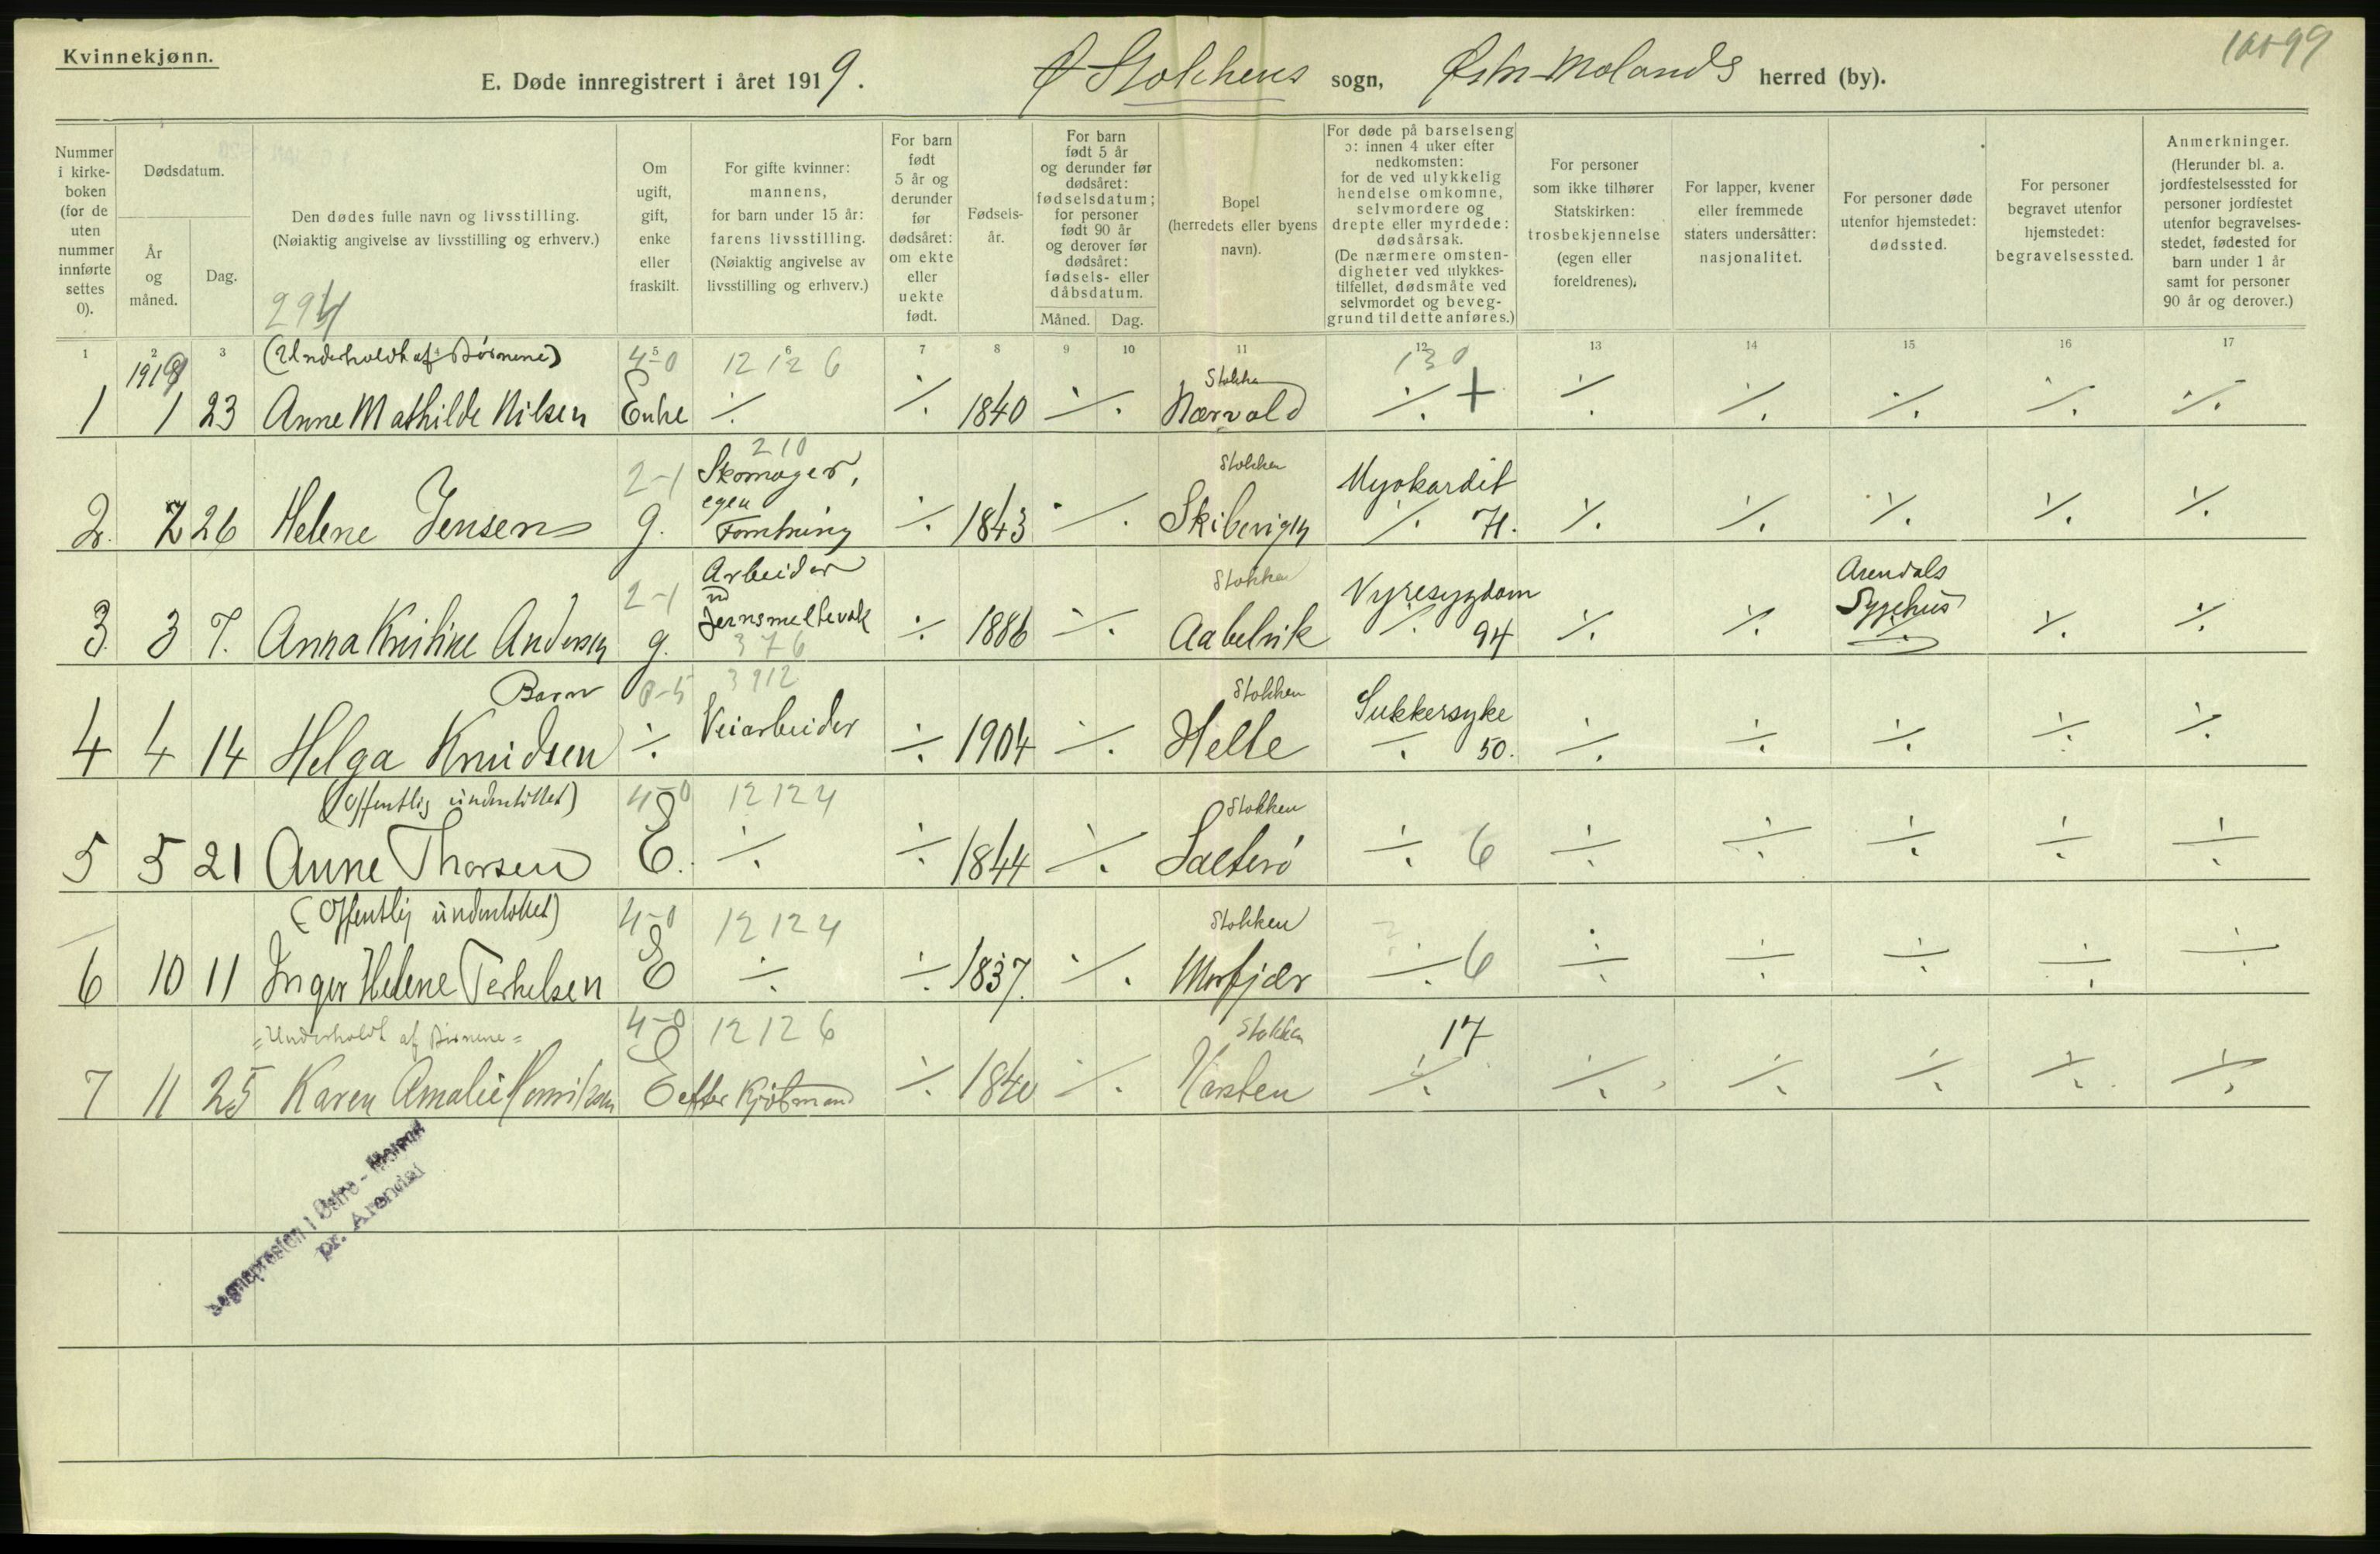 Kvinnekjønn.
E. Døde innregistrert i året 1919. Stokkens sogn, Østre Molands herred (by).
Nummer i kirkeboken (for de uten nummer innførte settes 0).
Dødsdatum.
År og måned.
Dag.
Den dødes fulle navn og livsstilling.
(Nøiaktig angivelse av livsstilling og erhverv.)
294
Om ugift, gift, enke eller fraskilt.
For gifte kvinner: mannens, for barn under 15 år: farens livsstilling.
(Nøiaktig angivelse av livsstilling og erhverv.)
For barn født 5 år og derunder før dødsåret: om ekte eller uekte født.
Fødsels-år.
For barn født 5 år og derunder før dødsåret: fødselsdatum; for personer født 90 år og derover før dødsåret: fødsels- eller dåbsdatum.
Måned. Dag.
Bopel
(herredets eller byens navn).
For døde på barselseng ɔ: innen 4 uker efter nedkomsten: for de ved ulykkelig hendelse omkomne, selvmordere og drepte eller myrdede: dødsårsak.
(De nærmere omsten-digheter ved ulykkes-tilfellet, dødsmåte ved selvmordet og beveg-grund til dette anføres.)
For personer som ikke tilhører Statskirken: trosbekjennelse (egen eller foreldrenes).
For lapper, kvener eller fremmede staters undersåtter: nasjonalitet.
For personer døde utenfor hjemstedet: dødssted.
For personer begravet utenfor hjemstedet: begravelsessted.
Anmerkninger.
(Herunder bl. a. jordfestelsessted for personer jordfestet utenfor begravelses-stedet, fødested for barn under 1 år samt for personer 90 år og derover.)
1 2 3 5 6 7 8 9 10 11 12 13 14 15 16 17
1919 (Underholdt af Børnene) 4-0 12 12 6 Stokken 130
1 1 23 Anne Mathilde Nilsen Enke ÷ ÷ 1840 ÷ Nærvold ÷ + ÷ ÷ ÷ ÷ ÷
2-1 210 Skomager, egen Forretning Stokken Myokardit
2. 2 26 Helene Jensen g. ÷ 1843 ÷ Skibevigen ÷ 71. ÷ ÷ ÷ ÷ ÷
2-1 Arbeider v/ Jernsmelteverk 376 Stokken Nyresygdom Arendals Sygehus
3. 3 7. Anna Kristine Andersen g. ÷ 1886 ÷ Aabelvik ÷ 94 ÷ ÷ ÷ ÷ ÷
Barn 0-5 3912 Stokken Sukkersyke
4 4 14 Helga Knudsen ÷ Veiarbeider ÷ 1904 ÷ Helle ÷ 50. ÷ ÷ ÷ ÷ ÷
(Offentlig understøttet) 4-0 12 12 4 Stokken
5 5 21 Anne Thorsen E. ÷ ÷ 1844 ÷ Salterø ÷ 6 ÷ ÷ ÷ ÷ ÷
(Offentlig understøttet) 4-0 12 12 4 Stokken
6 10 11 Inger Helene Terkelsen E ÷ ÷ 1837. ÷ Morfjær ÷ 6 ÷ ÷ ÷ ÷ ÷
=Underholdt af Børnene= 4-0 12 12 6 Stokken 17
7 11 25 Karen Amalie Henriksen E efter Kjøbmand ÷ 1840 ÷ ÷ ÷ ÷ ÷ ÷ ÷
Sognepresten i Østre-Moland
pr. Arendal